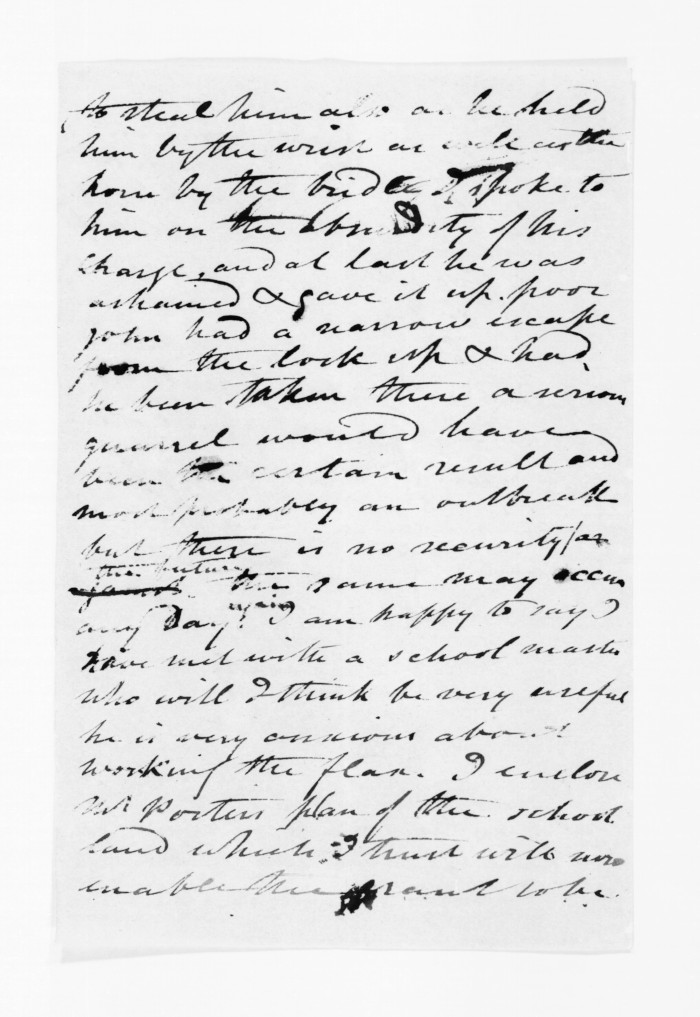 to steal him also as he held
him by the wrist as well as the
horse by the bridle I spoke to
him on the absurdity of his
charge, and at last he was
ashamed & gave it up. poor
John had a narrow escape
from the lock up & had
he been taken there a serious
quarrel would have
been the certain result and
most probably an outbreak
but there is no security for
the future
the same may occur
again
any day. I am happy to say I
have met with a school master
who will I think be very useful
he is very anxious about
working the flax. I enclose
Mr Porters plan of the school
land which I trust will now
enable the grant to be